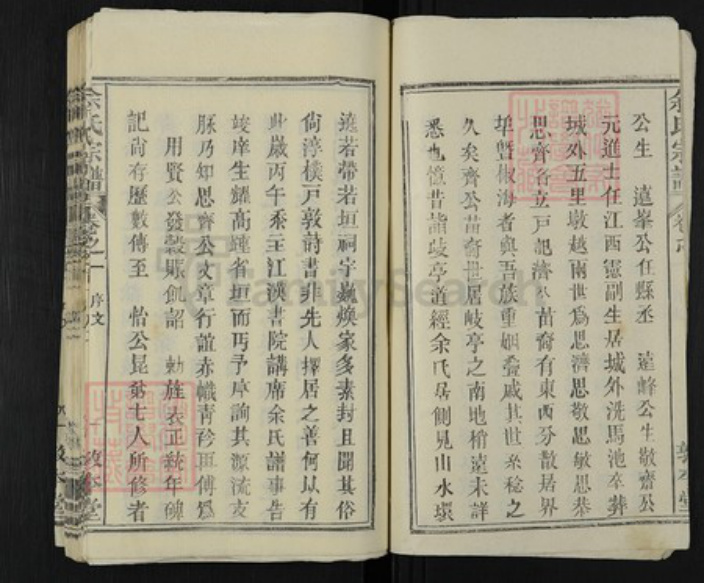 公生　遠峯公任縣丞　遠峰公生敬齋公
元進士任江西憲副生居城外洗馬池卒葬
城外五里墩越兩世爲思濟思敬思敏思恭
思齊各立戸記濟公苗裔有東西分散居界
埠暨椒海者與吾族重姻叠戚其世系稔之
久矣齊公苗裔世居岐亭之南地稍遠未詳
悉也憶昔詣歧亭道經余氏居側見山水環
遶若帶若垣祠宇巍煥家多素封且聞其俗
尚淳樸戸敦詩書非先人擇居之善何以有
此歲丙午忝主江漢書院講席余氏譜事告
竣庠生耀高踵省垣而丐予序詢其源流支
脉乃知思齊公文章行誼赤幟青衿再傅爲
用賢公發穀賑飢詔　勅旌表正統年碑
記尚存歷數傳至　怡公昆弟七人所修者
余氏宗譜
卷之一
序文
敦本堂
余氏宗譜
敦本堂
FamilySearch